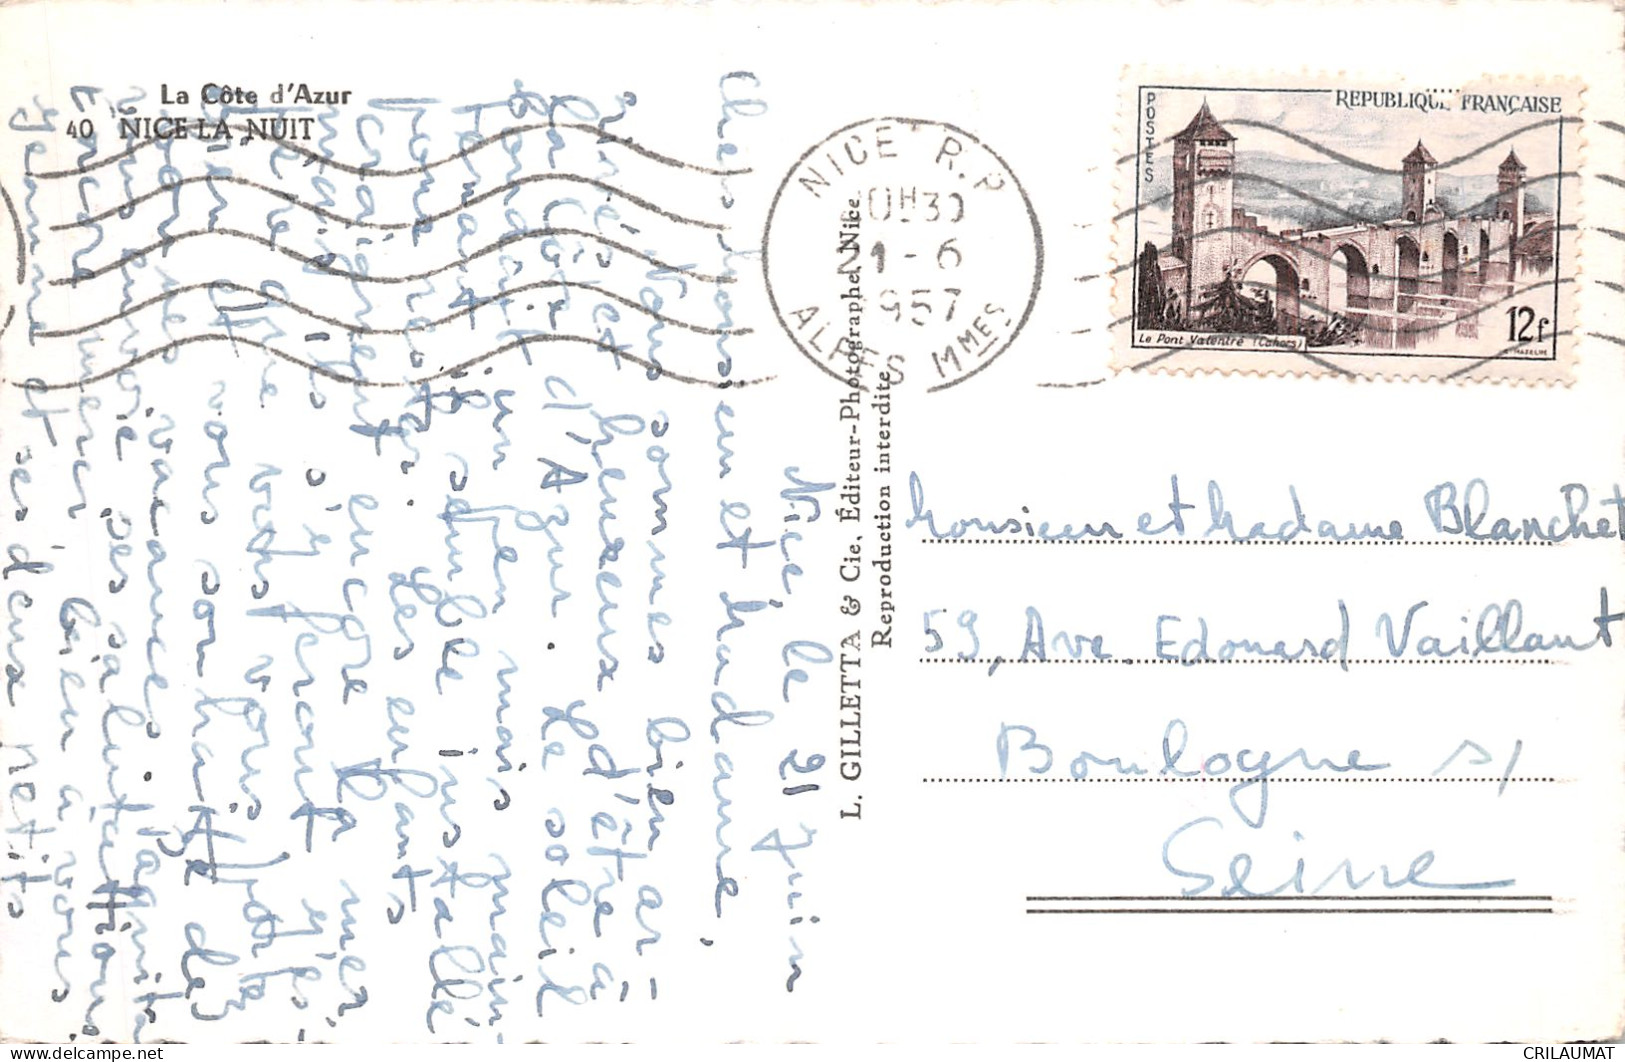 La Côte d'Azur
40 NICE LA NUIT
Nice, le 21 Juin
Chers Monsieur et Madame,
Nous sommes bien ar-
rivés et heureux d'être à
la Côte d'Azur. Le soleil
boudait un peu mais main-
tenant il semble installé
pour rester. Les enfants
craignent encore la mer
mais ils s'y feront j'es-
père que vous vous portez
bien et vous souhaite de
bonnes vacances.
vous envoie ses salutations
Encore merci bien à vous
Jeanne et ses deux petits
L. GILLETTA & Cie, Éditeur-Photographe, Nice
Reproduction interdite
NICE R.P
0H30
1-6
1957
ALPES MMES
POSTES
REPUBLIQUE FRANÇAISE
Le Pont Valentré (Cahors)
12f
Monsieur et Madame Blanchet
59, Ave. Edouard Vaillant
Boulogne s/
Seine
CRILAUMAT